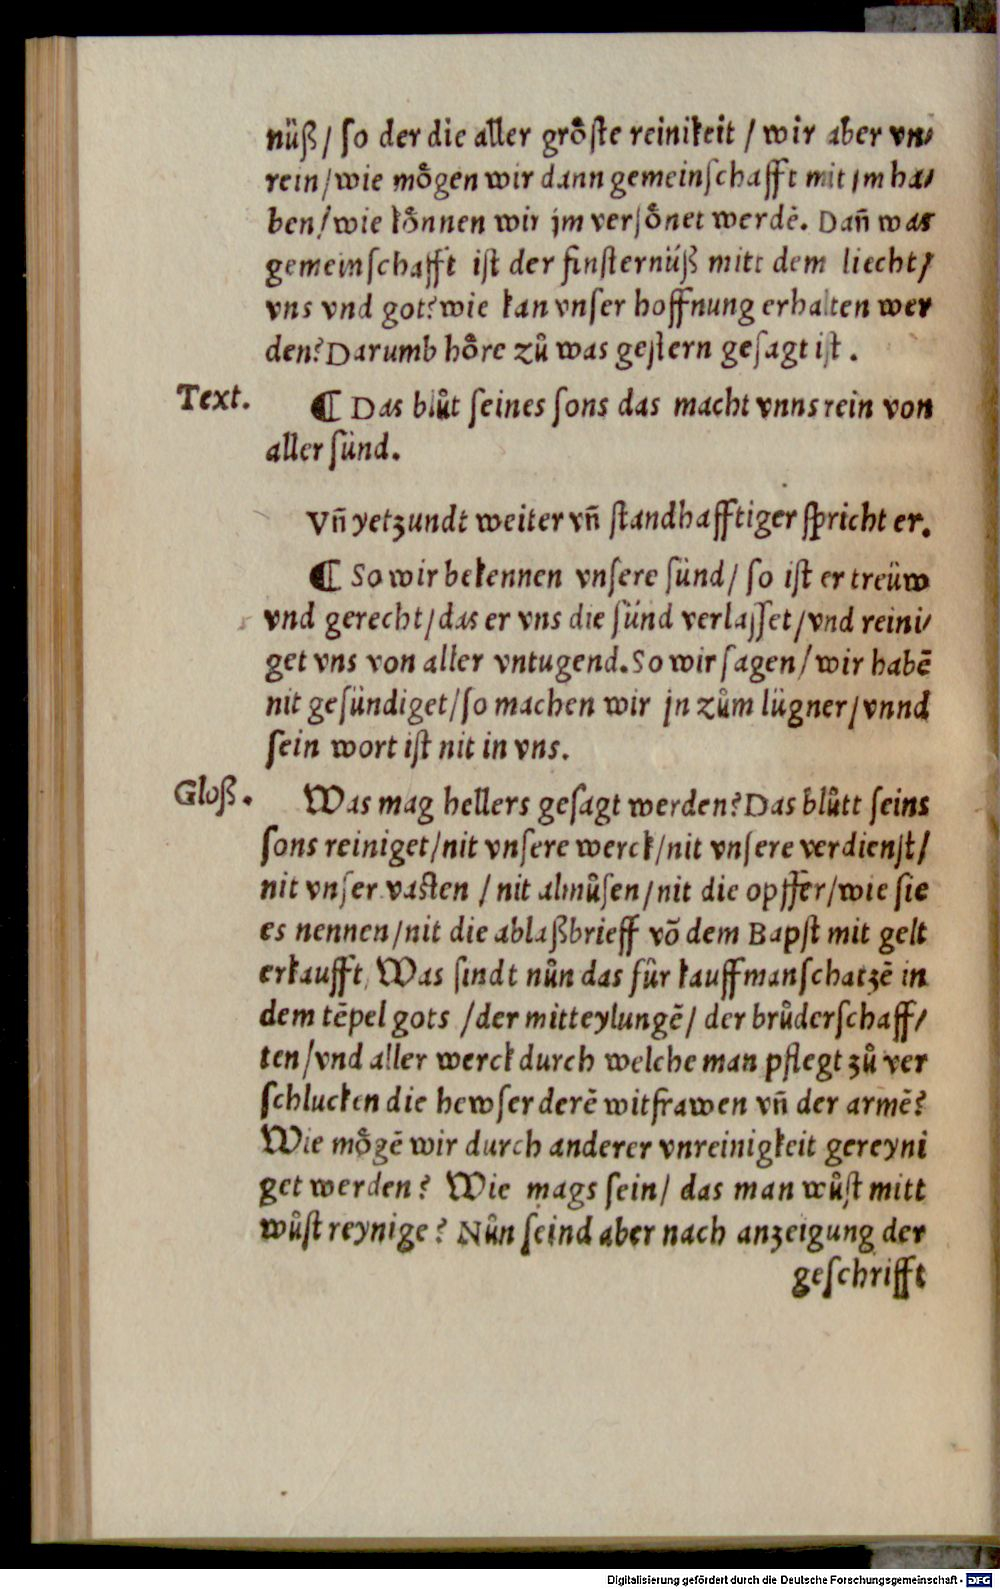 nüß/ ſo der die aller groͤſte reinikeit / wir aber vn⸗
rein/wie moͤgen wir dann gemeinſchafft mit jm ha⸗
ben/wie koͤnnen wir jm verſoͤnet werdē. Dañ was
gemeinſchafft iſt der finſternüß mitt dem liecht/
vns vnd got?wie kan vnſer hoffnung erhalten wer
den?Darumb hoͤre zů was geſtern geſagt iſt .
Text. ¶ Das blůt ſeines ſons das macht vnns rein von
aller ſünd.
Vñ yetzundt weiter vñ ſtandhafftiger ſpricht er.
¶ So wir bekennen vnſere ſünd/ ſo iſt er treüw
vnd gerecht/das er vns die ſünd verlaſſet/vnd reini⸗
get vns von aller vntugend.So wir ſagen/wir habē
nit geſündiget/ſo machen wir jn zům lügner/vnnd
ſein wort iſt nit in vns.
Gloß. Was mag hellers geſagt werden?Das blůtt ſeins
ſons reiniget/nit vnſere werck/nit vnſere verdienſt/
nit vnſer vaſten / nit almůſen/nit die opffer/wie ſie
es nennen/nit die ablaßbrieff võ dem Bapſt mit gelt
erkaufft, Was ſindt nůn das für kauffmanſchatzē in
dem tēpel gots /der mitteylungē/ der brůderſchaff⸗
ten/vnd aller werck durch welche man pflegt zů ver
ſchlucken die hewſer derē witfrawen vñ der armē?
Wie moͤgē wir durch anderer vnreinigkeit gereyni
get werden? Wie mags ſein/ das man wůſt mitt
wůſt reynige? Nůn ſeind aber nach anzeigung der
geſchrifft
Digitalisierung gefördert durch die Deutsche Forschungsgemeinschaft - DFG